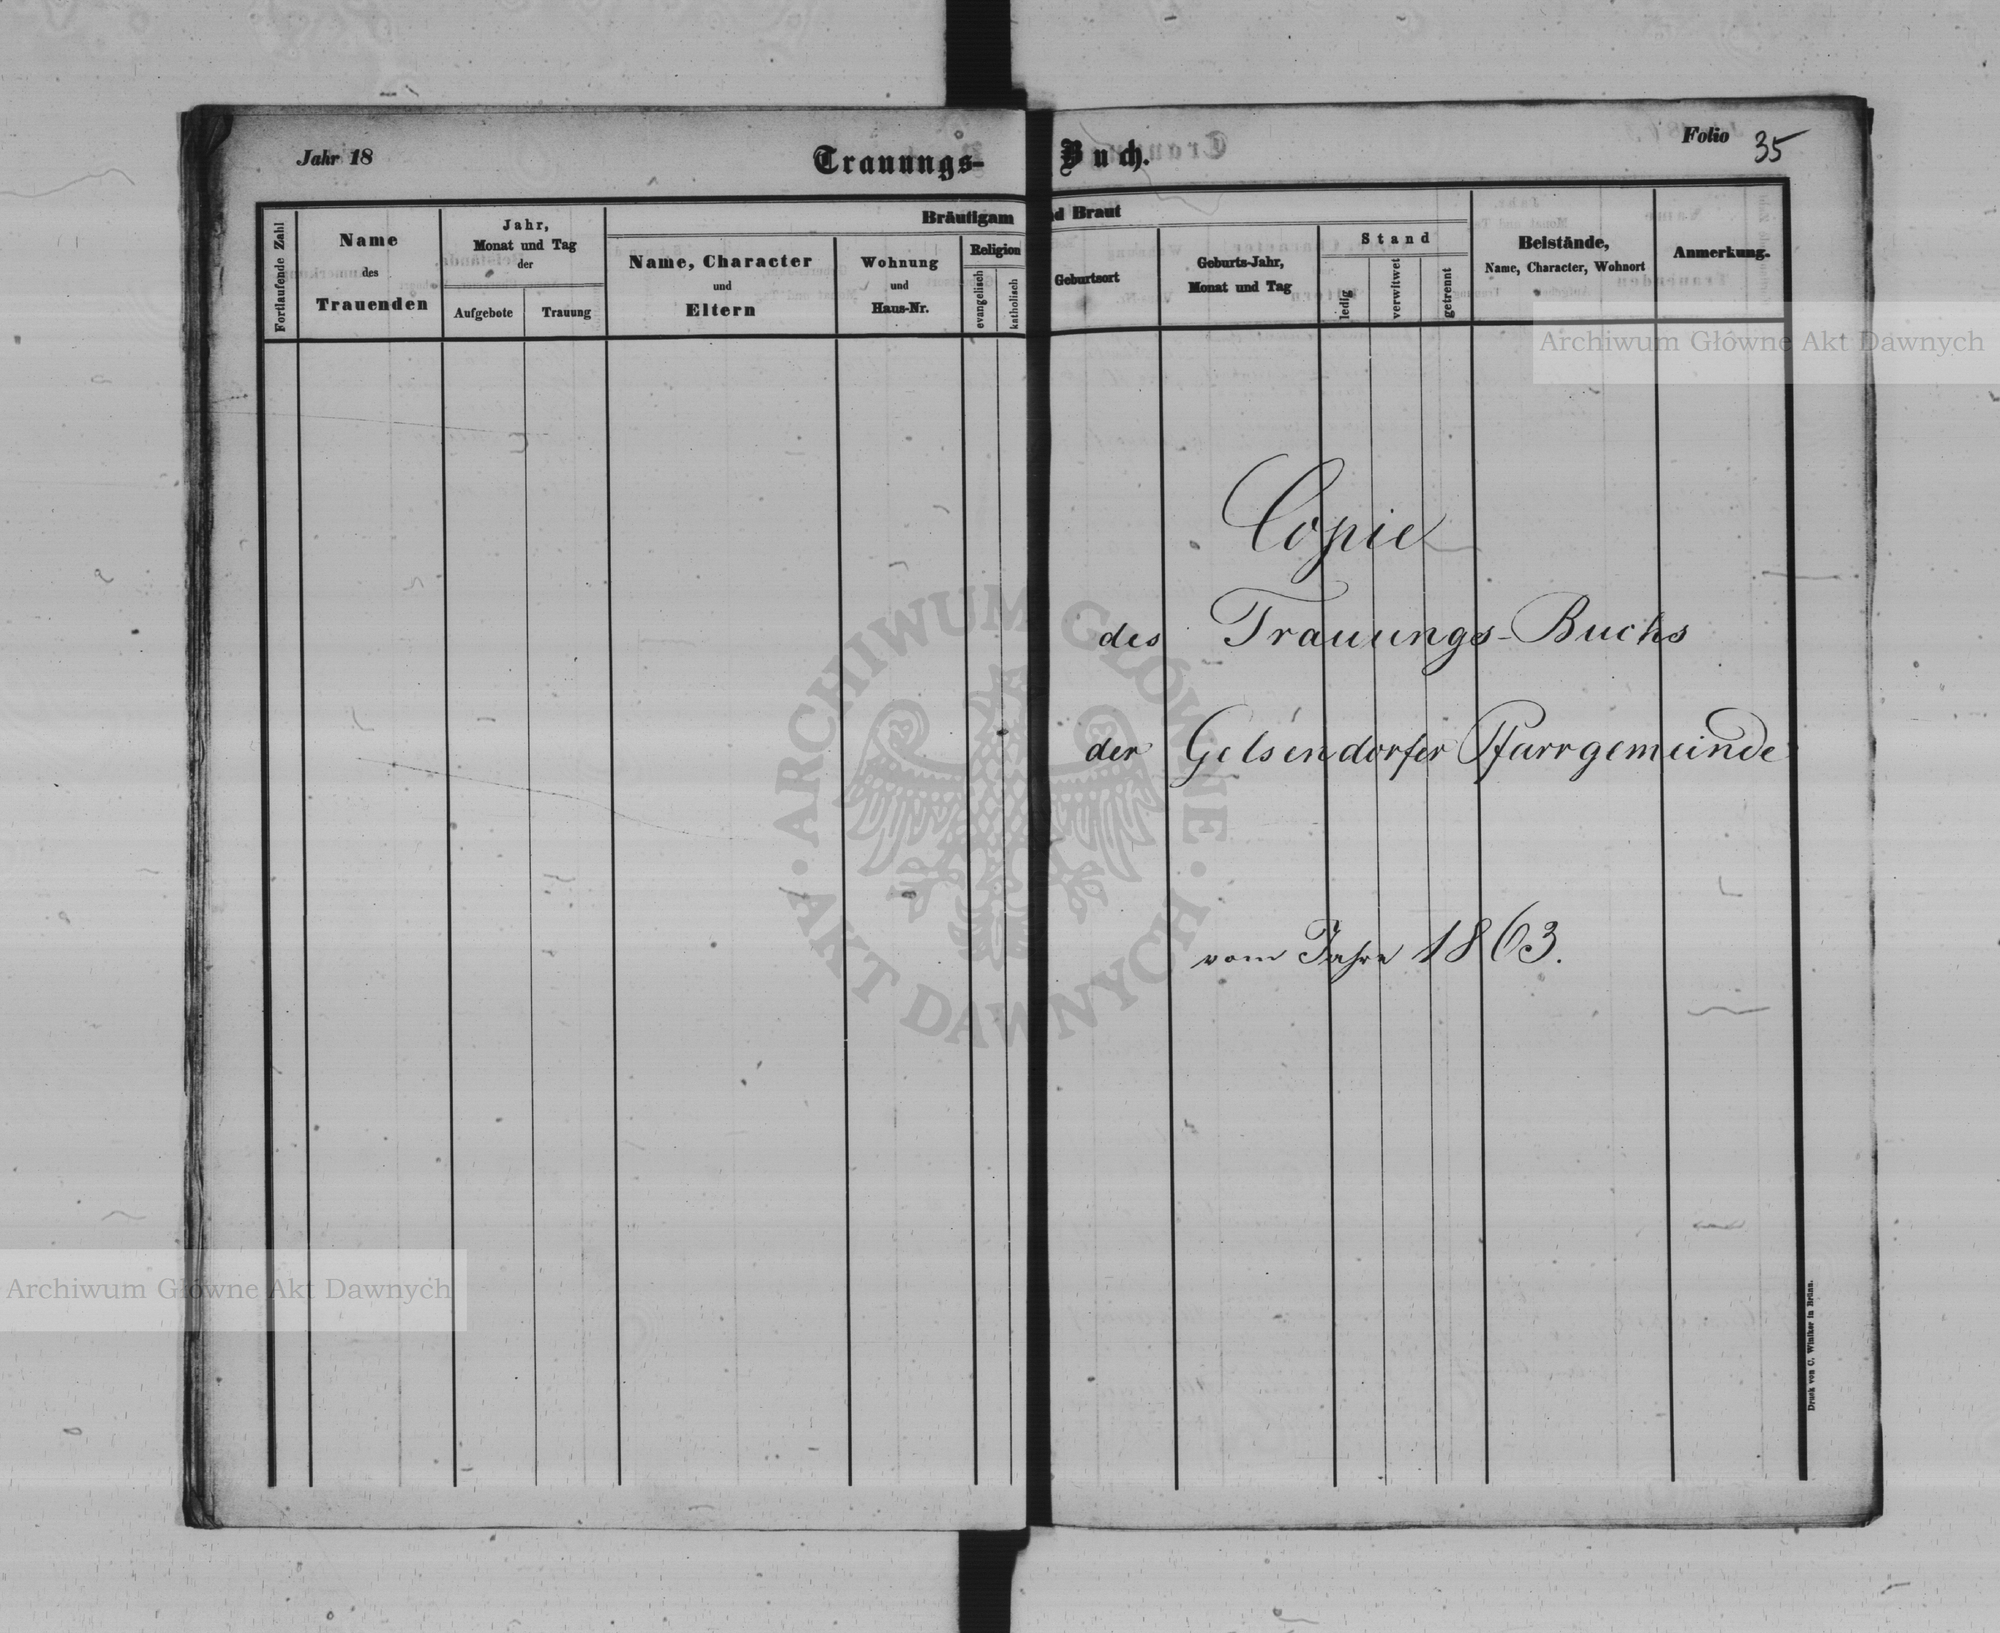 Jahr 18
Trauungs-Buch.
Folio 35
Fortlaufende Zahl
Name
des
Trauenden
Jahr,
Monat und Tag
der
Aufgebote
Trauung
Bräutigam
nd Braut
Name, Character
und
Eltern
Wohnung
und
Haus-Nr.
Religion
evangelisch
katholisch
Geburtsort
Geburts-Jahr,
Monat und Tag
Stand
ledig
verwitwet
getrennt
Beistände,
Name, Character, Wohnort
Anmerkung.
Archiwum Główne Akt Dawnych
Copie
des Trauungs-Buchs
der Gelsendorfer Pfarrgemeinde
vom Jahre 1863.
ARCHIWUM GŁÓWNE · AKT DAWNYCH ·
Archiwum Główne Akt Dawnych
Druck von C. Winiker in Brünn.